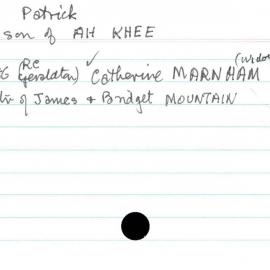 Patrick
son of AH KHEE
RC (Widow
(Geraldton) ✓ Catherine MARNHAM
of James + Bridget MOUNTAIN